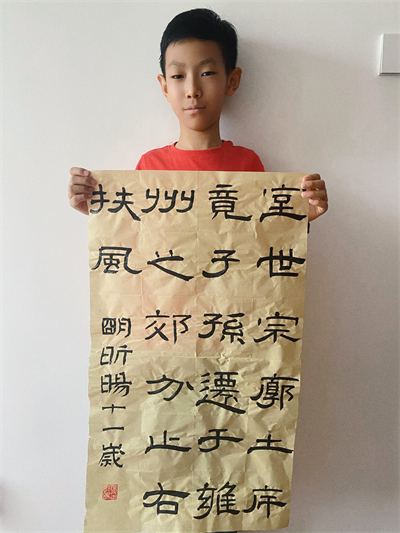 室世宗廓土斥
竟子孫遷于雍
州之郊分止右
扶風
明昕暘十一歲